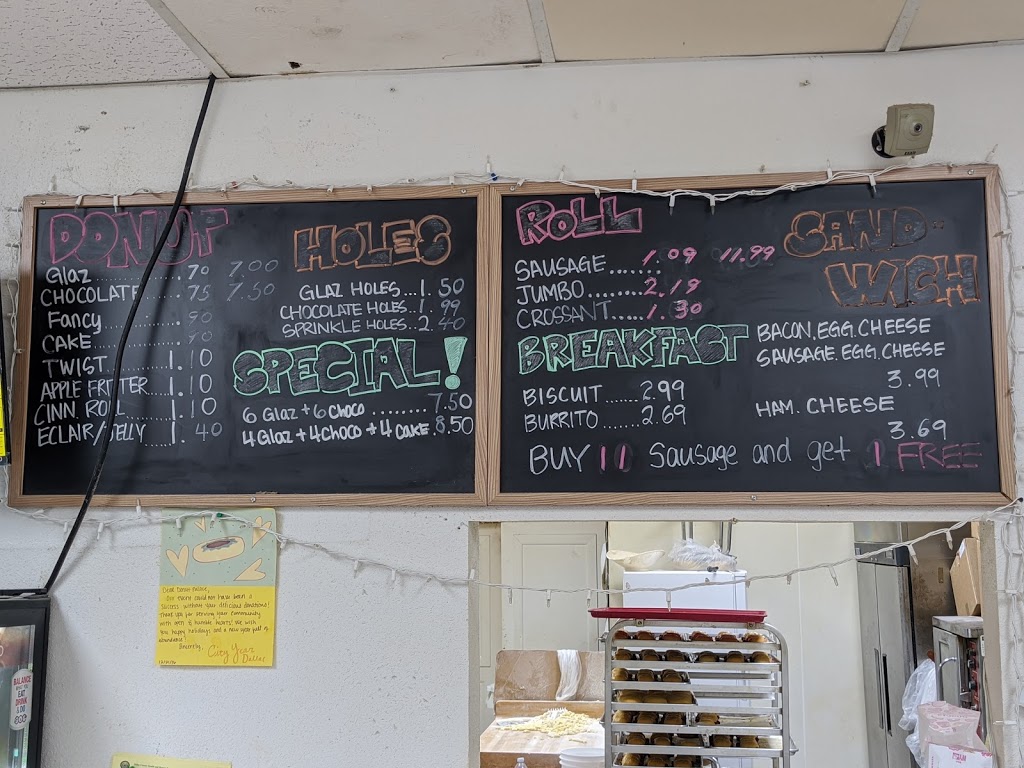 DONUT
Glaz ........ .70 7.00
CHOCOLATE ..... .75 7.50
Fancy ........ .90
CAKE ........ .90
TWIST ..... 1.10
APPLE FRITTER .... 1.10
CINN. ROLL ..... 1.10
ECLAIR/JELLY .... 1.40
HOLES
GLAZ HOLES... 1.50
CHOCOLATE HOLES.. 1.99
SPRINKLE HOLES.. 2.40
SPECIAL!
6 Glaz + 6 CHOCO ........ 7.50
4 Glaz + 4 CHOCO + 4 CAKE . 8.50
ROLL
SAUSAGE ....... 1.09 11.99
JUMBO ........ 2.19
CROSSANT ..... 1.30
BREAKFAST
BISCUIT ...... 2.99
BURRITO ..... 2.69
SAND-
WICH
BACON.EGG.CHEESE
SAUSAGE.EGG.CHEESE
3.99
HAM. CHEESE
3.69
BUY 11 Sausage and get 1 FREE
Dear Donut Palace,
Our event could not have been a
success without your delicious donations!
Thank you for serving your community
with open & humble hearts! We wish
you happy holidays and a new year full of
abundance!
Sincerely, City Year
Dallas
BALANCE
EAT
DRINK
& DO